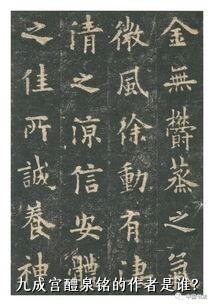 金無欝蒸之氣
微風徐動有淒
清之涼信安體
之佳所誠養神
九成宫醴泉铭的作者是谁?